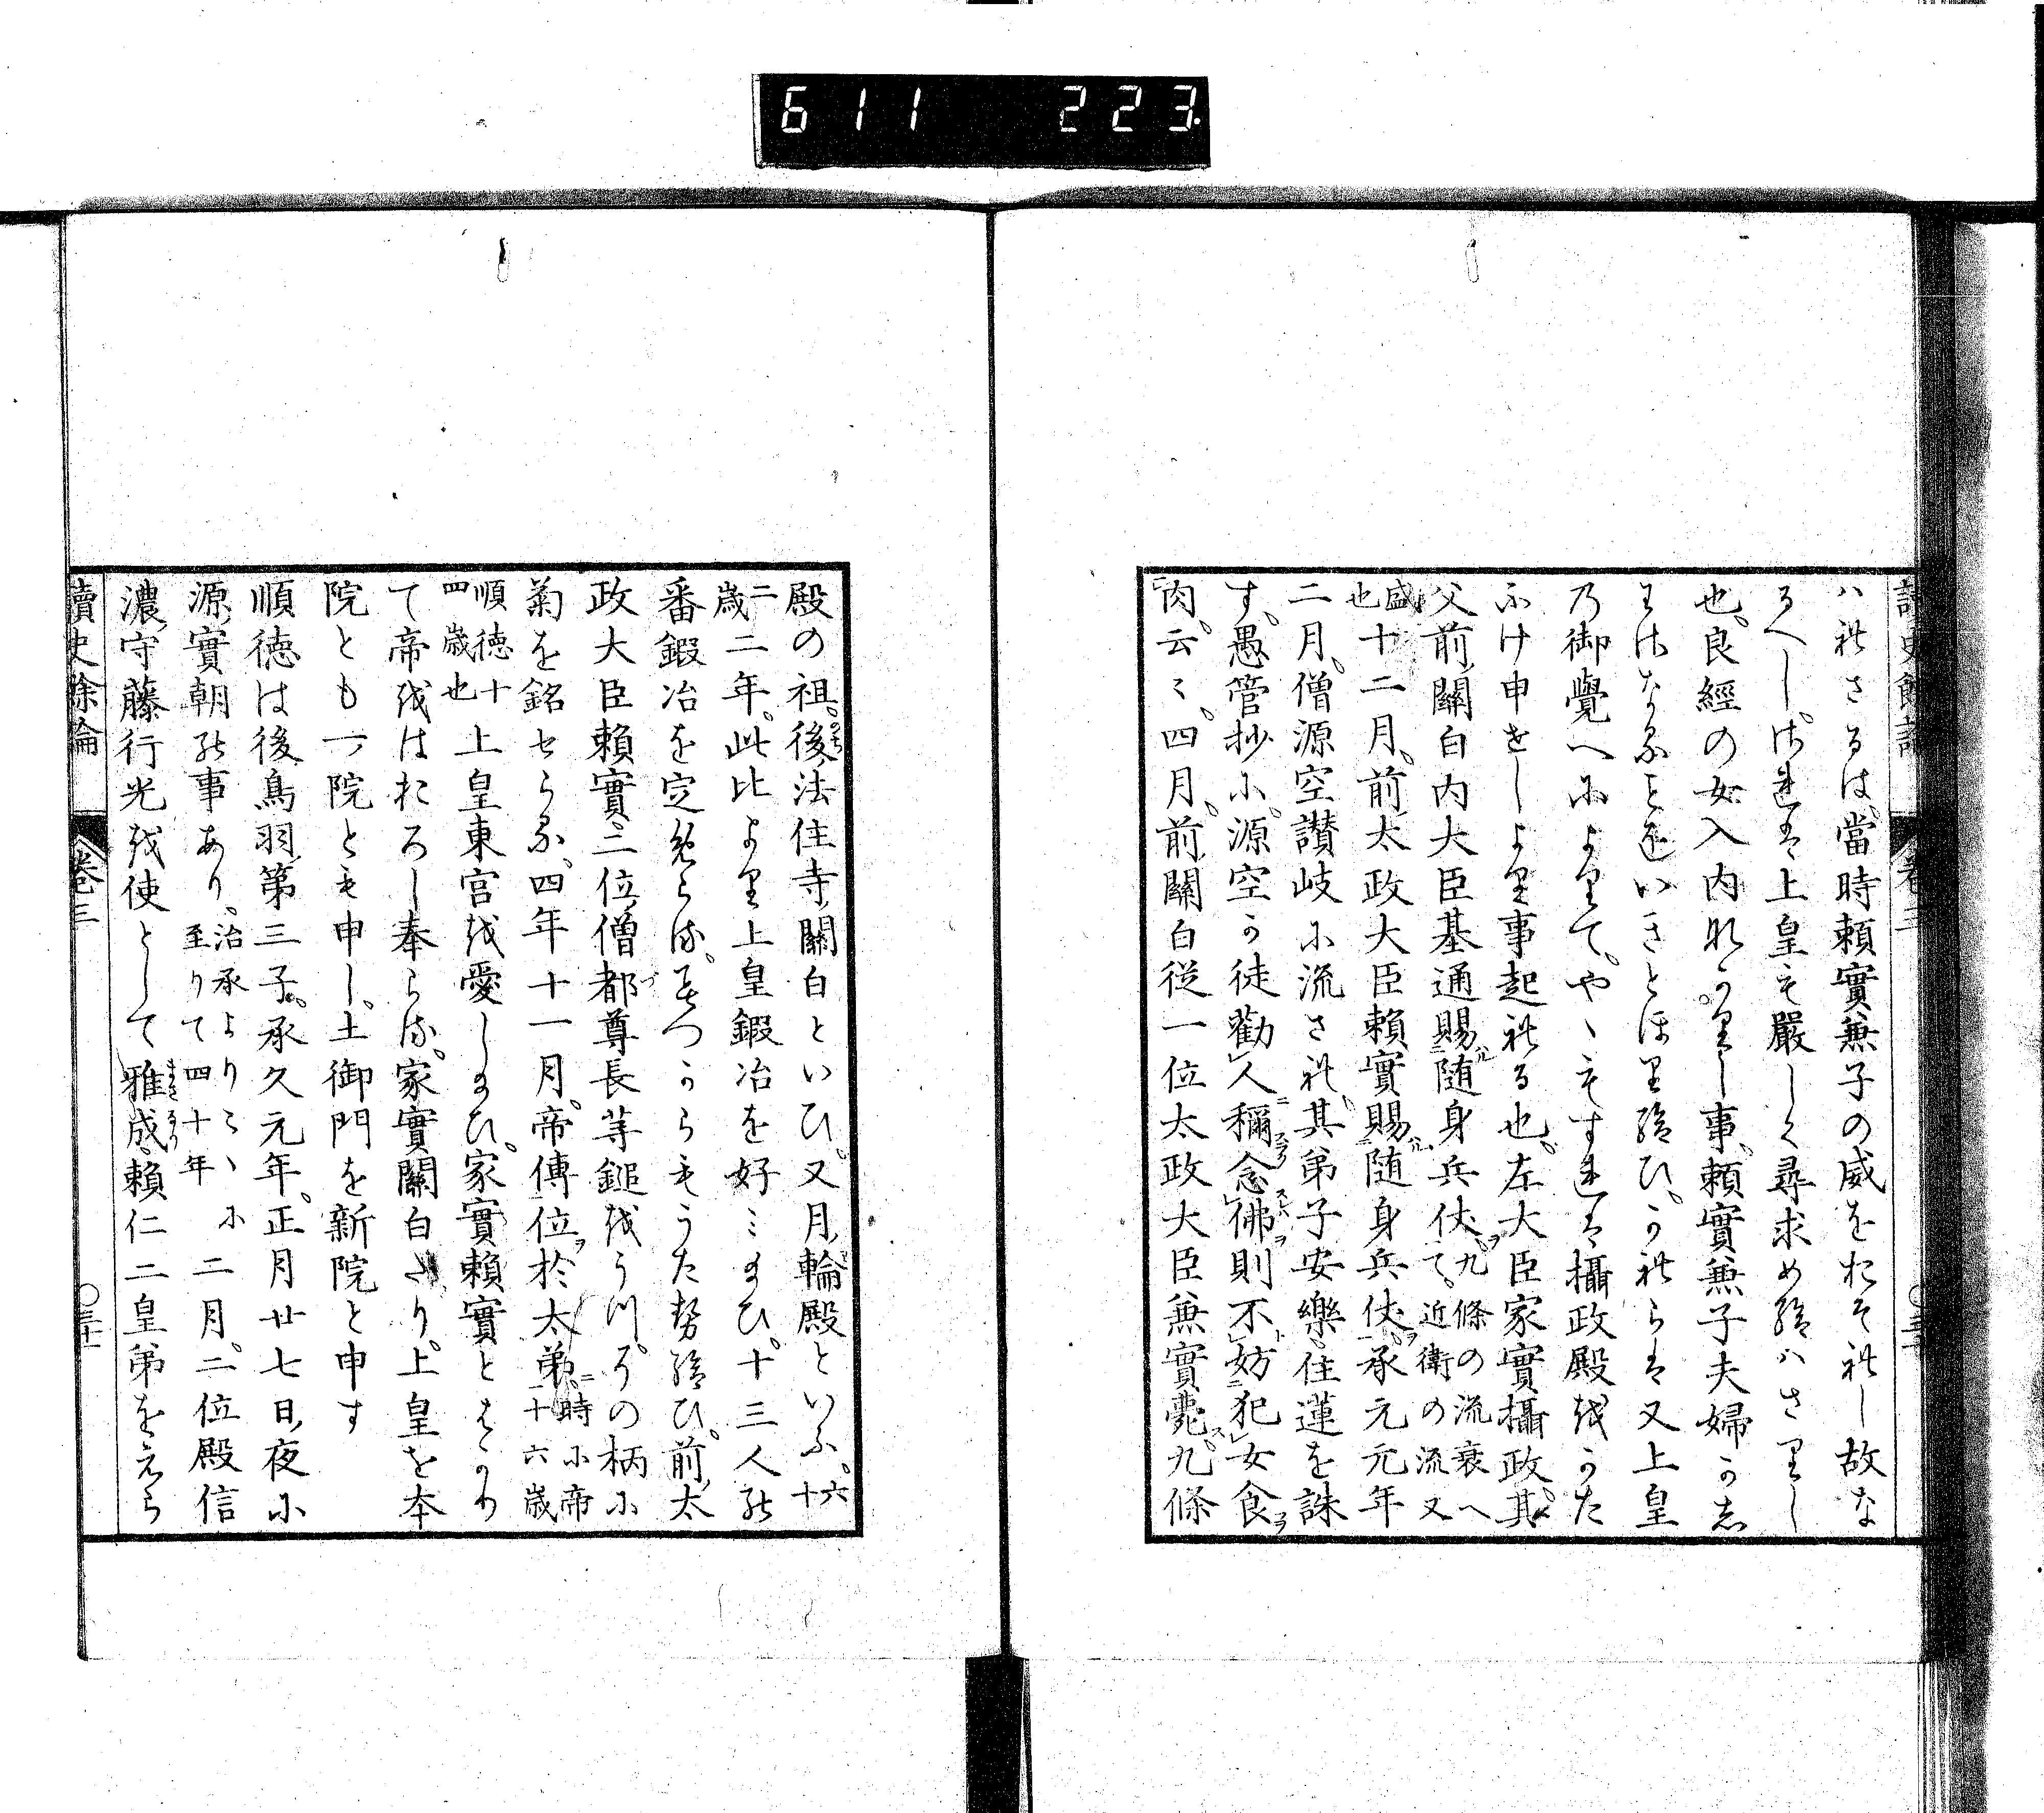 611 223.
ハれさるは、當時頼實無子の威をおそれし故な
るへし、され共上皇も嚴しく尋求め給ハさりし
也、良經の女入内ありし事、頼實無子夫婦
乃御覺へによりて、やゝもすれは攝政殿をかた
ふけ申せしより事起れる也、左大臣家實攝政、其
父前關白内大臣基通賜随身兵仗、九條の流衰へて、近衛の流又
盛也十二月、前太政大臣頼實賜随身兵仗、承元元年
二月、僧源空讃岐に流され、其弟子安樂住蓮を誅
す、愚管抄に、源空か徒勸人稱念佛則不妨犯女食
肉云々、四月、前關白従一位太政大臣兼實薨、九條
殿の祖、後法住寺關白といひ、又月輪殿といふ、六十
二歳二年、此比より上皇鍛冶を好ミ給ひ、十三人の
番鍛冶を定めらる、みつからもうた勢給ひ、前太
政大臣頼實二位僧都尊長等鎚をうつ、その柄に
菊を銘せらる、四年十一月、帝傳位於太弟、時に帝二十六歳
順徳十四歳也上皇東宮を愛し給ひ、家實頼實とはかり
て帝をはおろし奉らる、家實關白たり、上皇を本
院とも一院とも申し、土御門を新院と申す
順徳は後鳥羽第三子、承久元年、正月廿七日、夜に
源實朝の事あり、治承よりこゝに至りて四十年二月、二位殿信
濃守藤行光を使として雅成頼仁二皇弟をえら
讀史餘論 卷三 三十一